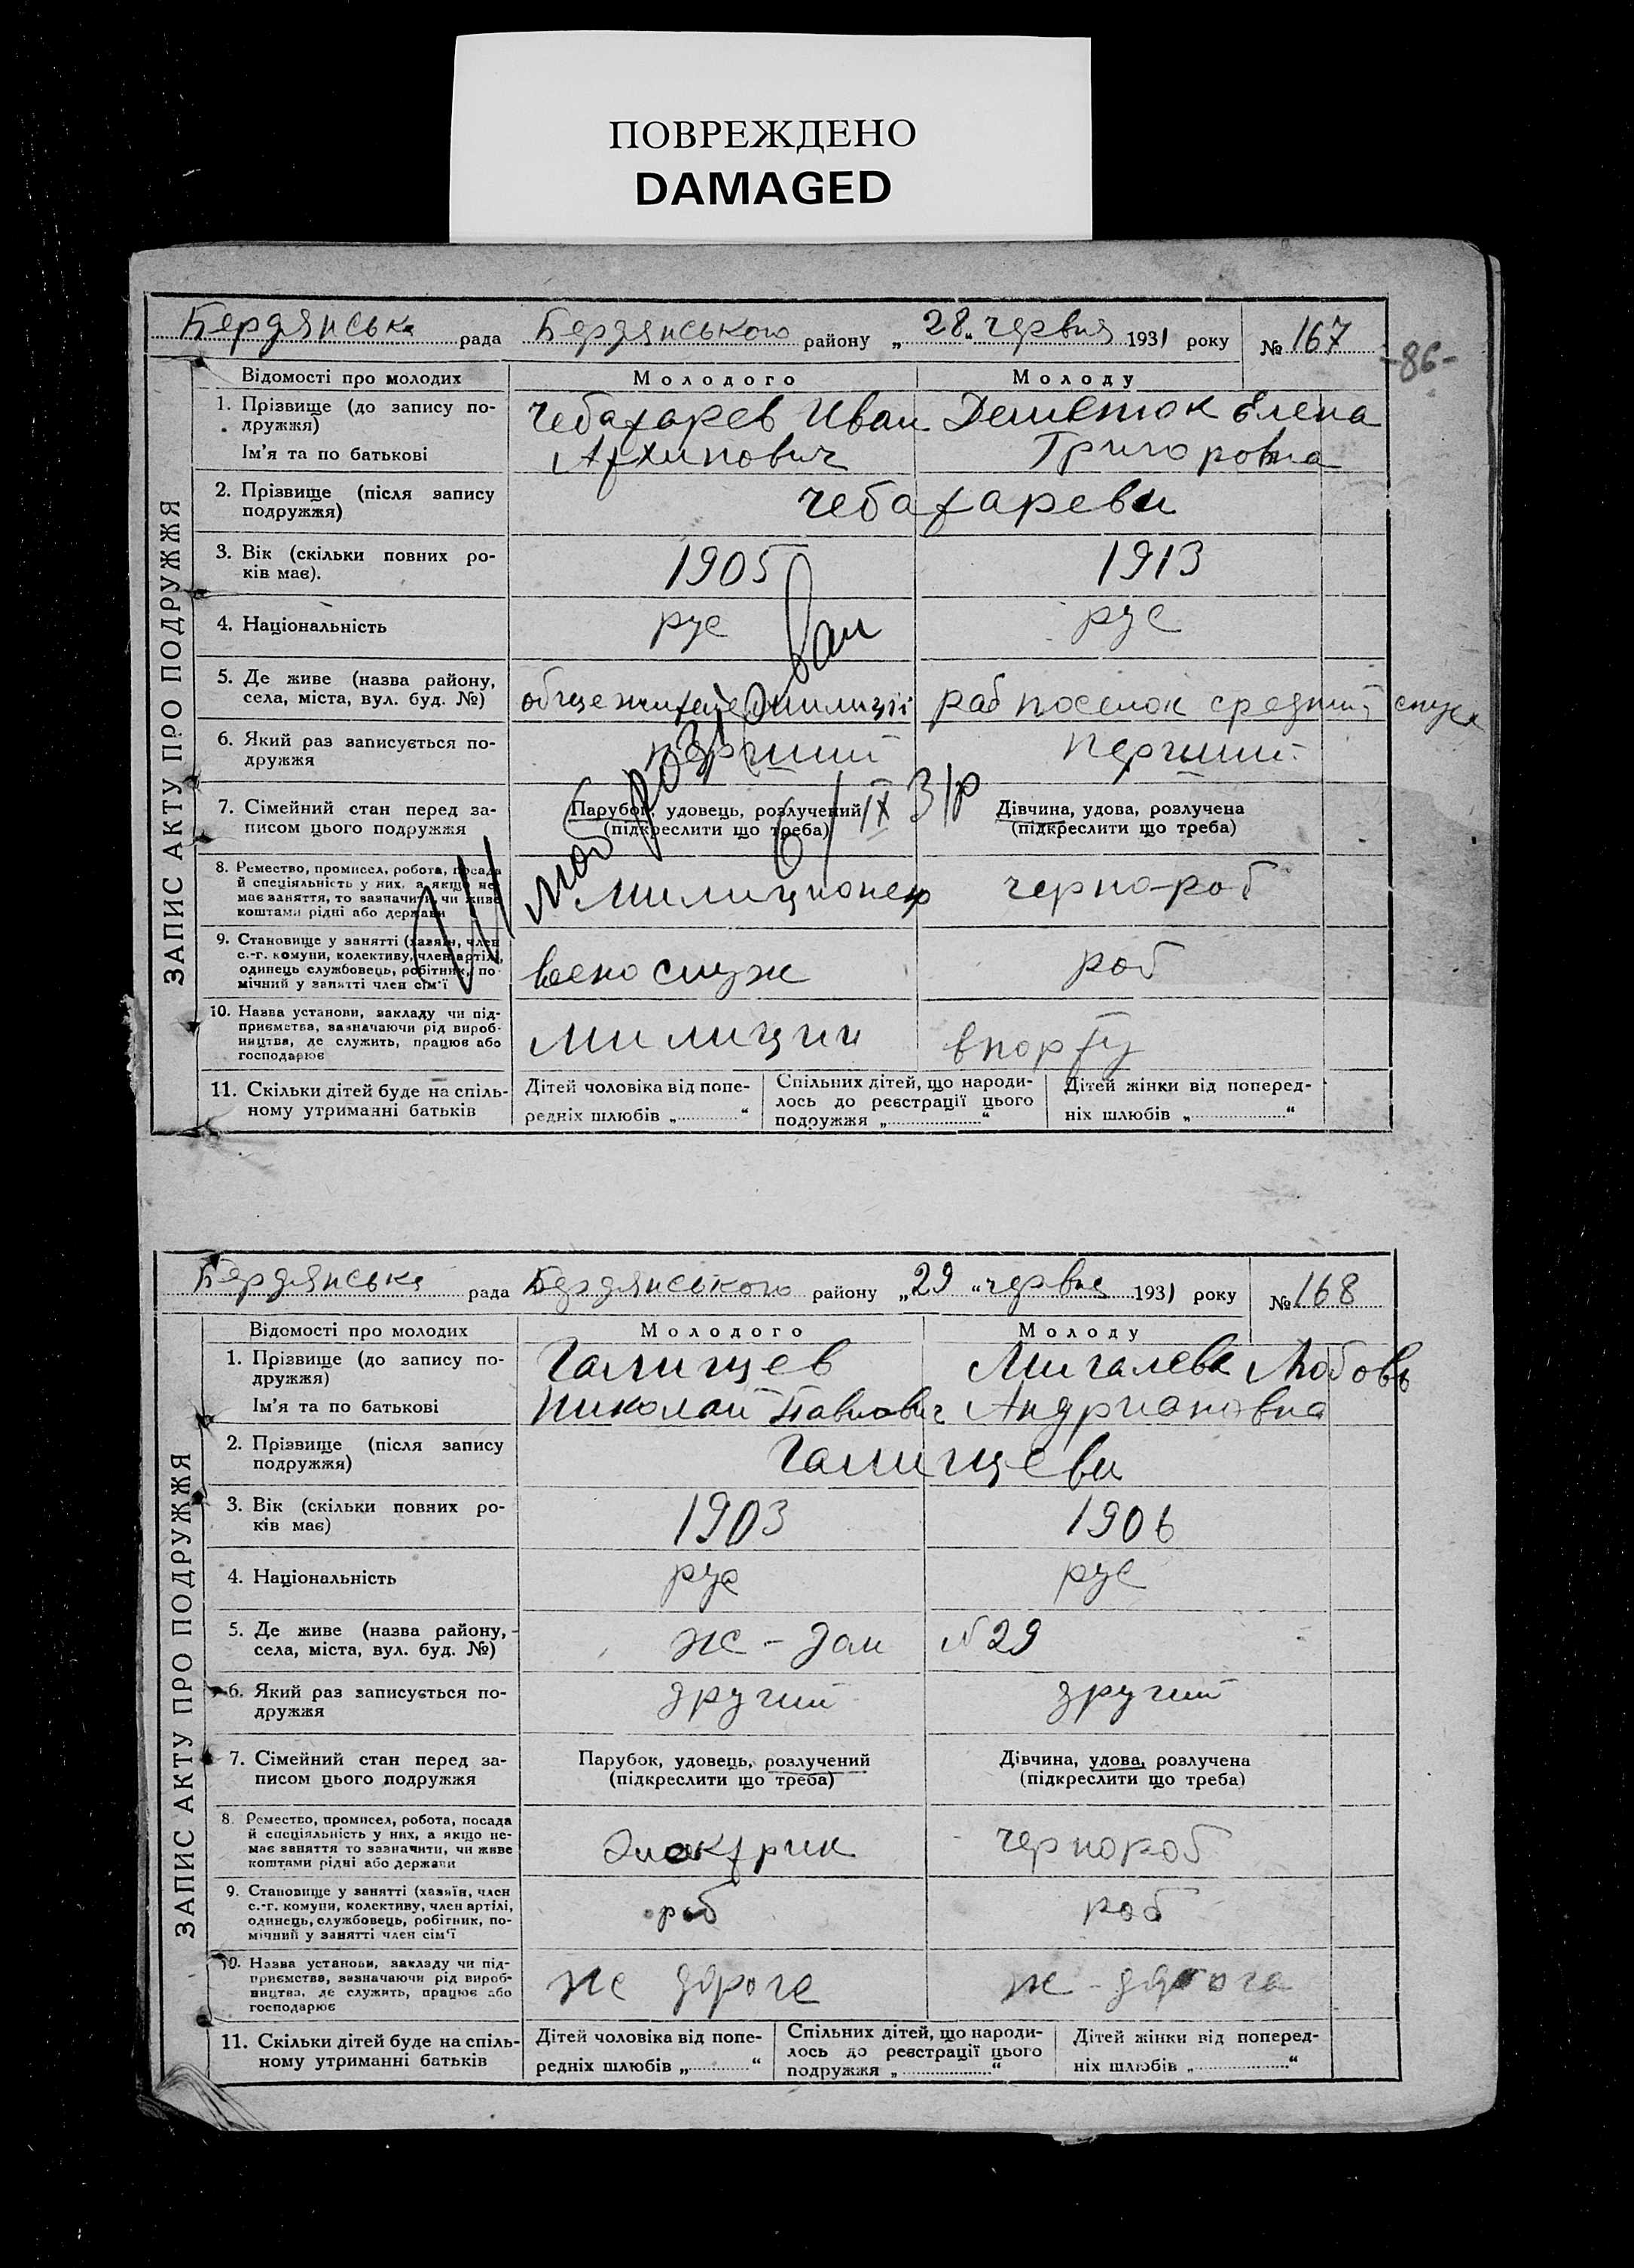 ПОВРЕЖДЕНО
DAMAGED
Бердянська рада Бердянського району „28“ червня 1931 року № 167
-86-
ЗАПИС АКТУ ПРО ПОДРУЖЖЯ
Відомості про молодих Молодого Молоду
1. Прізвище (до запису по-
дружжя)
Ім'я та по батькові
Чебатарев Иван
Архипович
Елена
Григоровна
2. Прізвище (після запису
подружжя)
Чебатареви
3. Вік (скільки повних ро-
ків має).
1905 1913
4. Національність
рус рус
5. Де живе (назва району,
села, міста, вул. буд. №)
общежитие милиції раб поселок средний спуск
6. Який раз записується по-
дружжя
перший перший
7. Сімейний стан перед за-
писом цього подружжя
Парубок, удовець, розлучений
(підкреслити що треба)
Дівчина, удова, розлучена
(підкреслити що треба)
IX 31р
8. Ремество, промисел, робота, посада
й спеціяльність у них, а якщо не
має заняття, то зазначити, чи живе
коштами рідні або держави
милиционер черно-роб
9. Становище у занятті (хазяїн, член
с.-г. комуни, колективу, член артілі,
одинець службовець, робітник, по-
мічний у занятті член сім'ї
военослуж роб
10. Назва установи, закладу чи під-
приємства, зазначаючи рід вироб-
ництва, де служить, працює або
господарює
милиции в порту
11. Скільки дітей буде на спіль-
ному утриманні батьків
Дітей чоловіка від попе-
редніх шлюбів „ “
Спільних дітей, що народи-
лось до реєстрації цього
подружжя „ “
Дітей жінки від поперед-
ніх шлюбів „ “
Бердянська рада Бердянського району „29“ червня 1931 року № 168
ЗАПИС АКТУ ПРО ПОДРУЖЖЯ
Відомості про молодих Молодого Молоду
1. Прізвище (до запису по-
дружжя)
Ім'я та по батькові
Галищев
Николай Павлович
Мигалева Любовь
Андриановна
2. Прізвище (після запису
подружжя)
Галищеви
3. Вік (скільки повних ро-
ків має)
1903 1906
4. Національність
рус рус
5. Де живе (назва району,
села, міста, вул. буд. №)
жс - дом №29
6. Який раз записується по-
дружжя
другий другий
7. Сімейний стан перед за-
писом цього подружжя
Парубок, удовець, розлучений
(підкреслити що треба)
Дівчина, удова, розлучена
(підкреслити що треба)
8. Ремество, промисел, робота, посада
й спеціяльність у них, а якщо не-
має заняття то зазначити, чи живе
коштами рідні або держави
Электрик чернороб
9. Становище у занятті (хазяїн, член
с.-г. комуни, колективу, член артілі,
одинець, службовець, робітник, по-
мічний у занятті член сім'ї
роб роб
10. Назва установи, закладу чи під-
приємства, зазначаючи рід вироб-
ництва, де служить, працює або
господарює
жс дорога жс - дорога
11. Скільки дітей буде на спіль-
ному утриманні батьків
Дітей чоловіка від попе-
редніх шлюбів „ “
Спільних дітей, що народи-
лось до реєстрації цього
подружжя „ “
Дітей жінки від поперед-
ніх шлюбів „ “